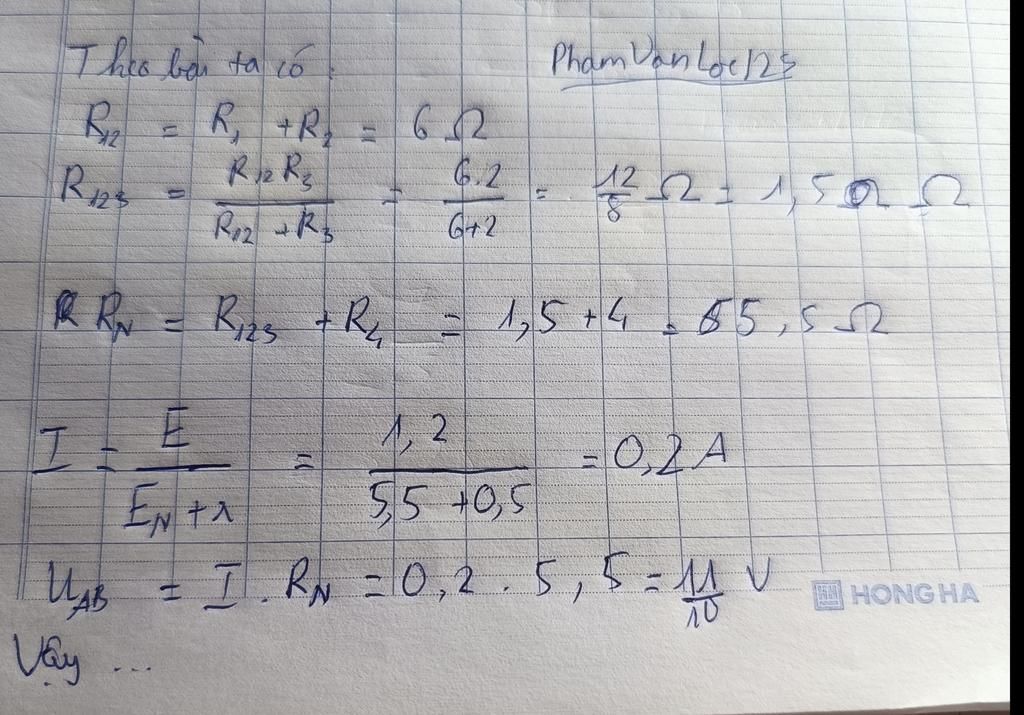 Theo bài ta có: PhamVanLoc123
R12 = R1 + R2 = 6 Ω
R123 = R12 R3 / R12 + R3 = 6.2 / 6+2 = 12/8 Ω = 1,5 Ω
RN = R123 + R4 = 1,5 + 4 = 5,5 Ω
I = E / EN + r = 1,2 / 5,5 + 0,5 = 0,2 A
UAB = I . RN = 0,2 . 5,5 = 11/10 V
HONG HA
Vậy ...